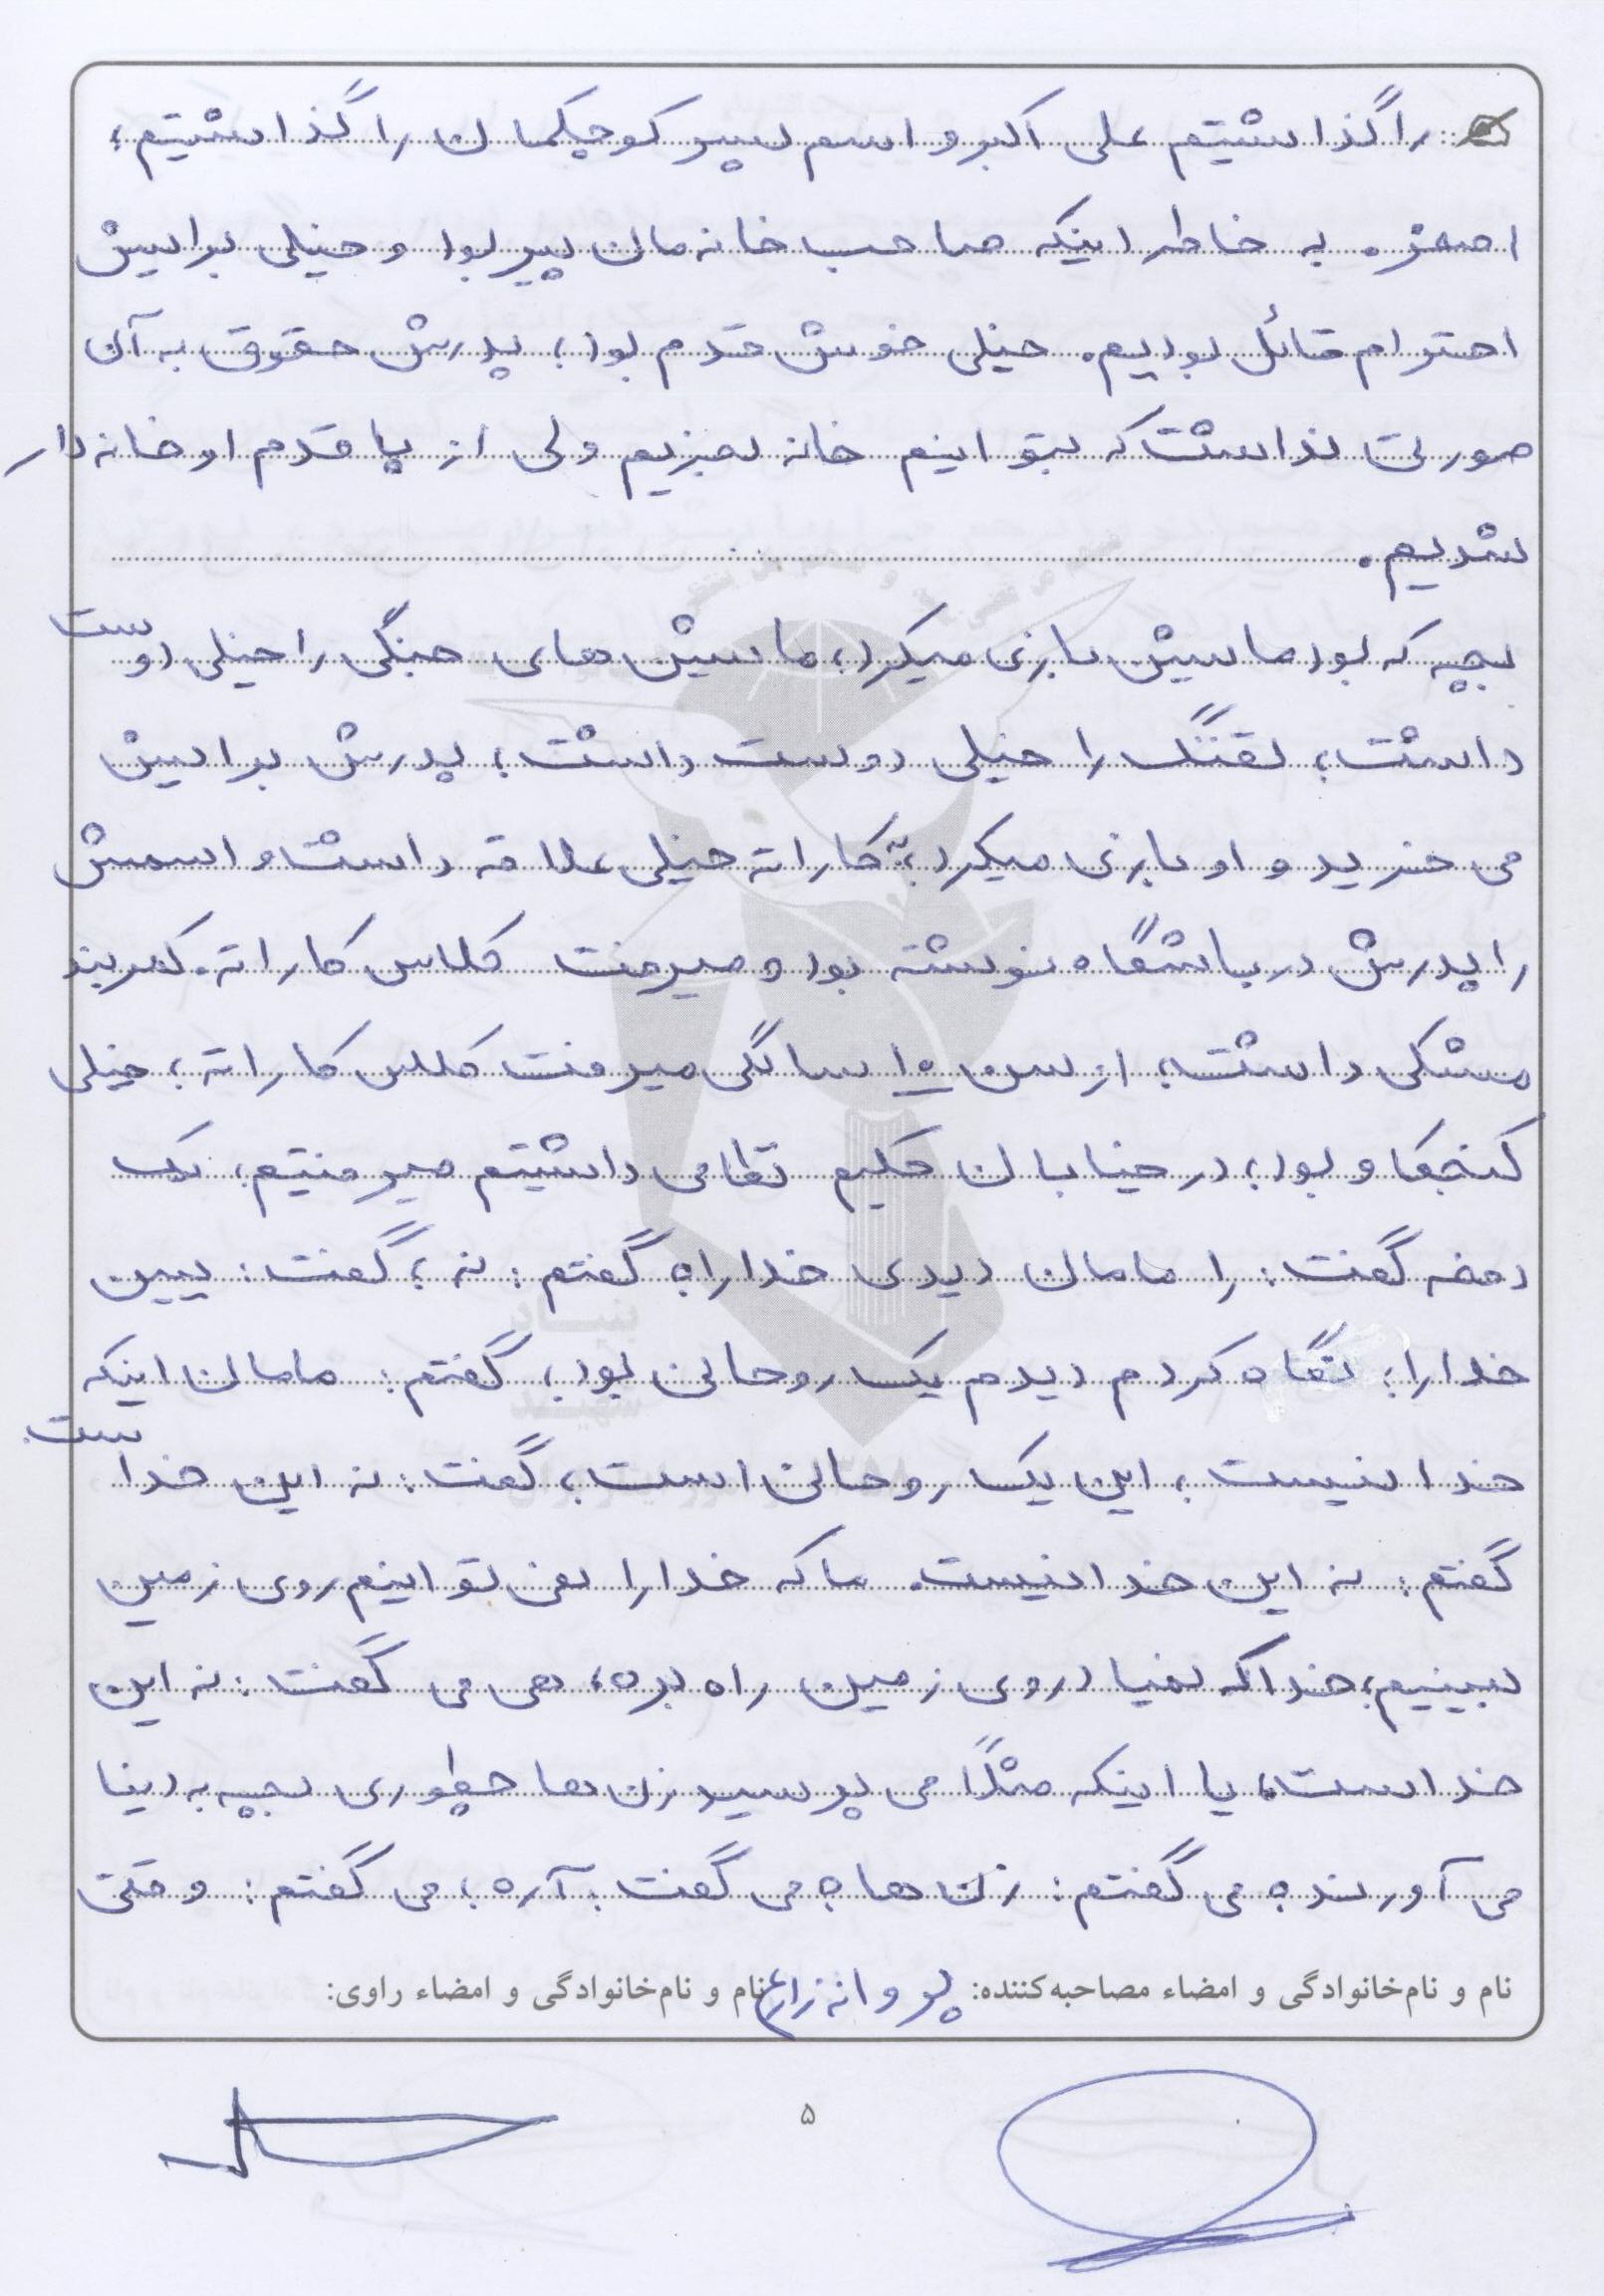 را گذاشتیم علی اکبر و اسم پسر کوچکمان را گذاشتیم؛
اصغر. به خاطر اینکه صاحب خانه مان پیر بود و خیلی برایش
احترام قائل بودیم. خیلی خوش قدم بود؛ پدرش حقوق به آن
صورتی نداشت که بتوانیم خانه بخریم ولی از پا قدم او خانه دار
شدیم.
بچه که بود ماشین بازی میکرد؛ ماشین های جنگی را خیلی دوست
داشت؛ تفنگ را خیلی دوست داشت؛ پدرش برایش
می خرید و او بازی میکرد؛ به کاراته خیلی علاقه داشت و اسمش
را پدرش در باشگاه نوشته بود و میرفت کلاس کاراته. کمربند
مشکی داشت؛ از سن ۱۵ سالگی میرفت کلاس کاراته؛ خیلی
کنجکاو بود؛ در خیابان حکیم نظامی داشتیم میرفتیم؛ یک
دفعه گفت: را مامان دیدی خدا را؟ گفتم: نه؛ گفت: ببین
خدا را؛ نگاه کردم دیدم یک روحانی بود؛ گفتم: مامان اینکه
خدا نیست؛ این یک روحانی است؛ گفت: نه این خداست.
گفتم: نه این خدا نیست. ما که خدا را نمی توانیم روی زمین
ببینیم؛ خدا که نمیاد روی زمین راه بره؛ هی می گفت: نه این
خداست. یا اینکه مثلاً می پرسید زن ها چطوری بچه به دنیا
می آورند؟ می گفتم: زن ها؟ می گفت: آره؛ می گفتم: وقتی
نام و نام‌خانوادگی و امضاء مصاحبه‌کننده: پروانه زارع نام و نام‌خانوادگی و امضاء راوی:
۵
بنیاد
شهید